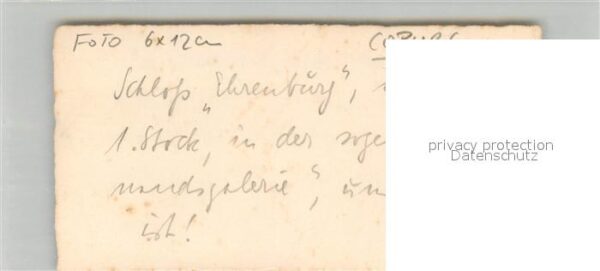 FOTO 6x12cm COBURG
Schloß „Ehrenburg“,
1. Stock, in der soge
nandsgalerie“, un
ist!
privacy protection
Datenschutz